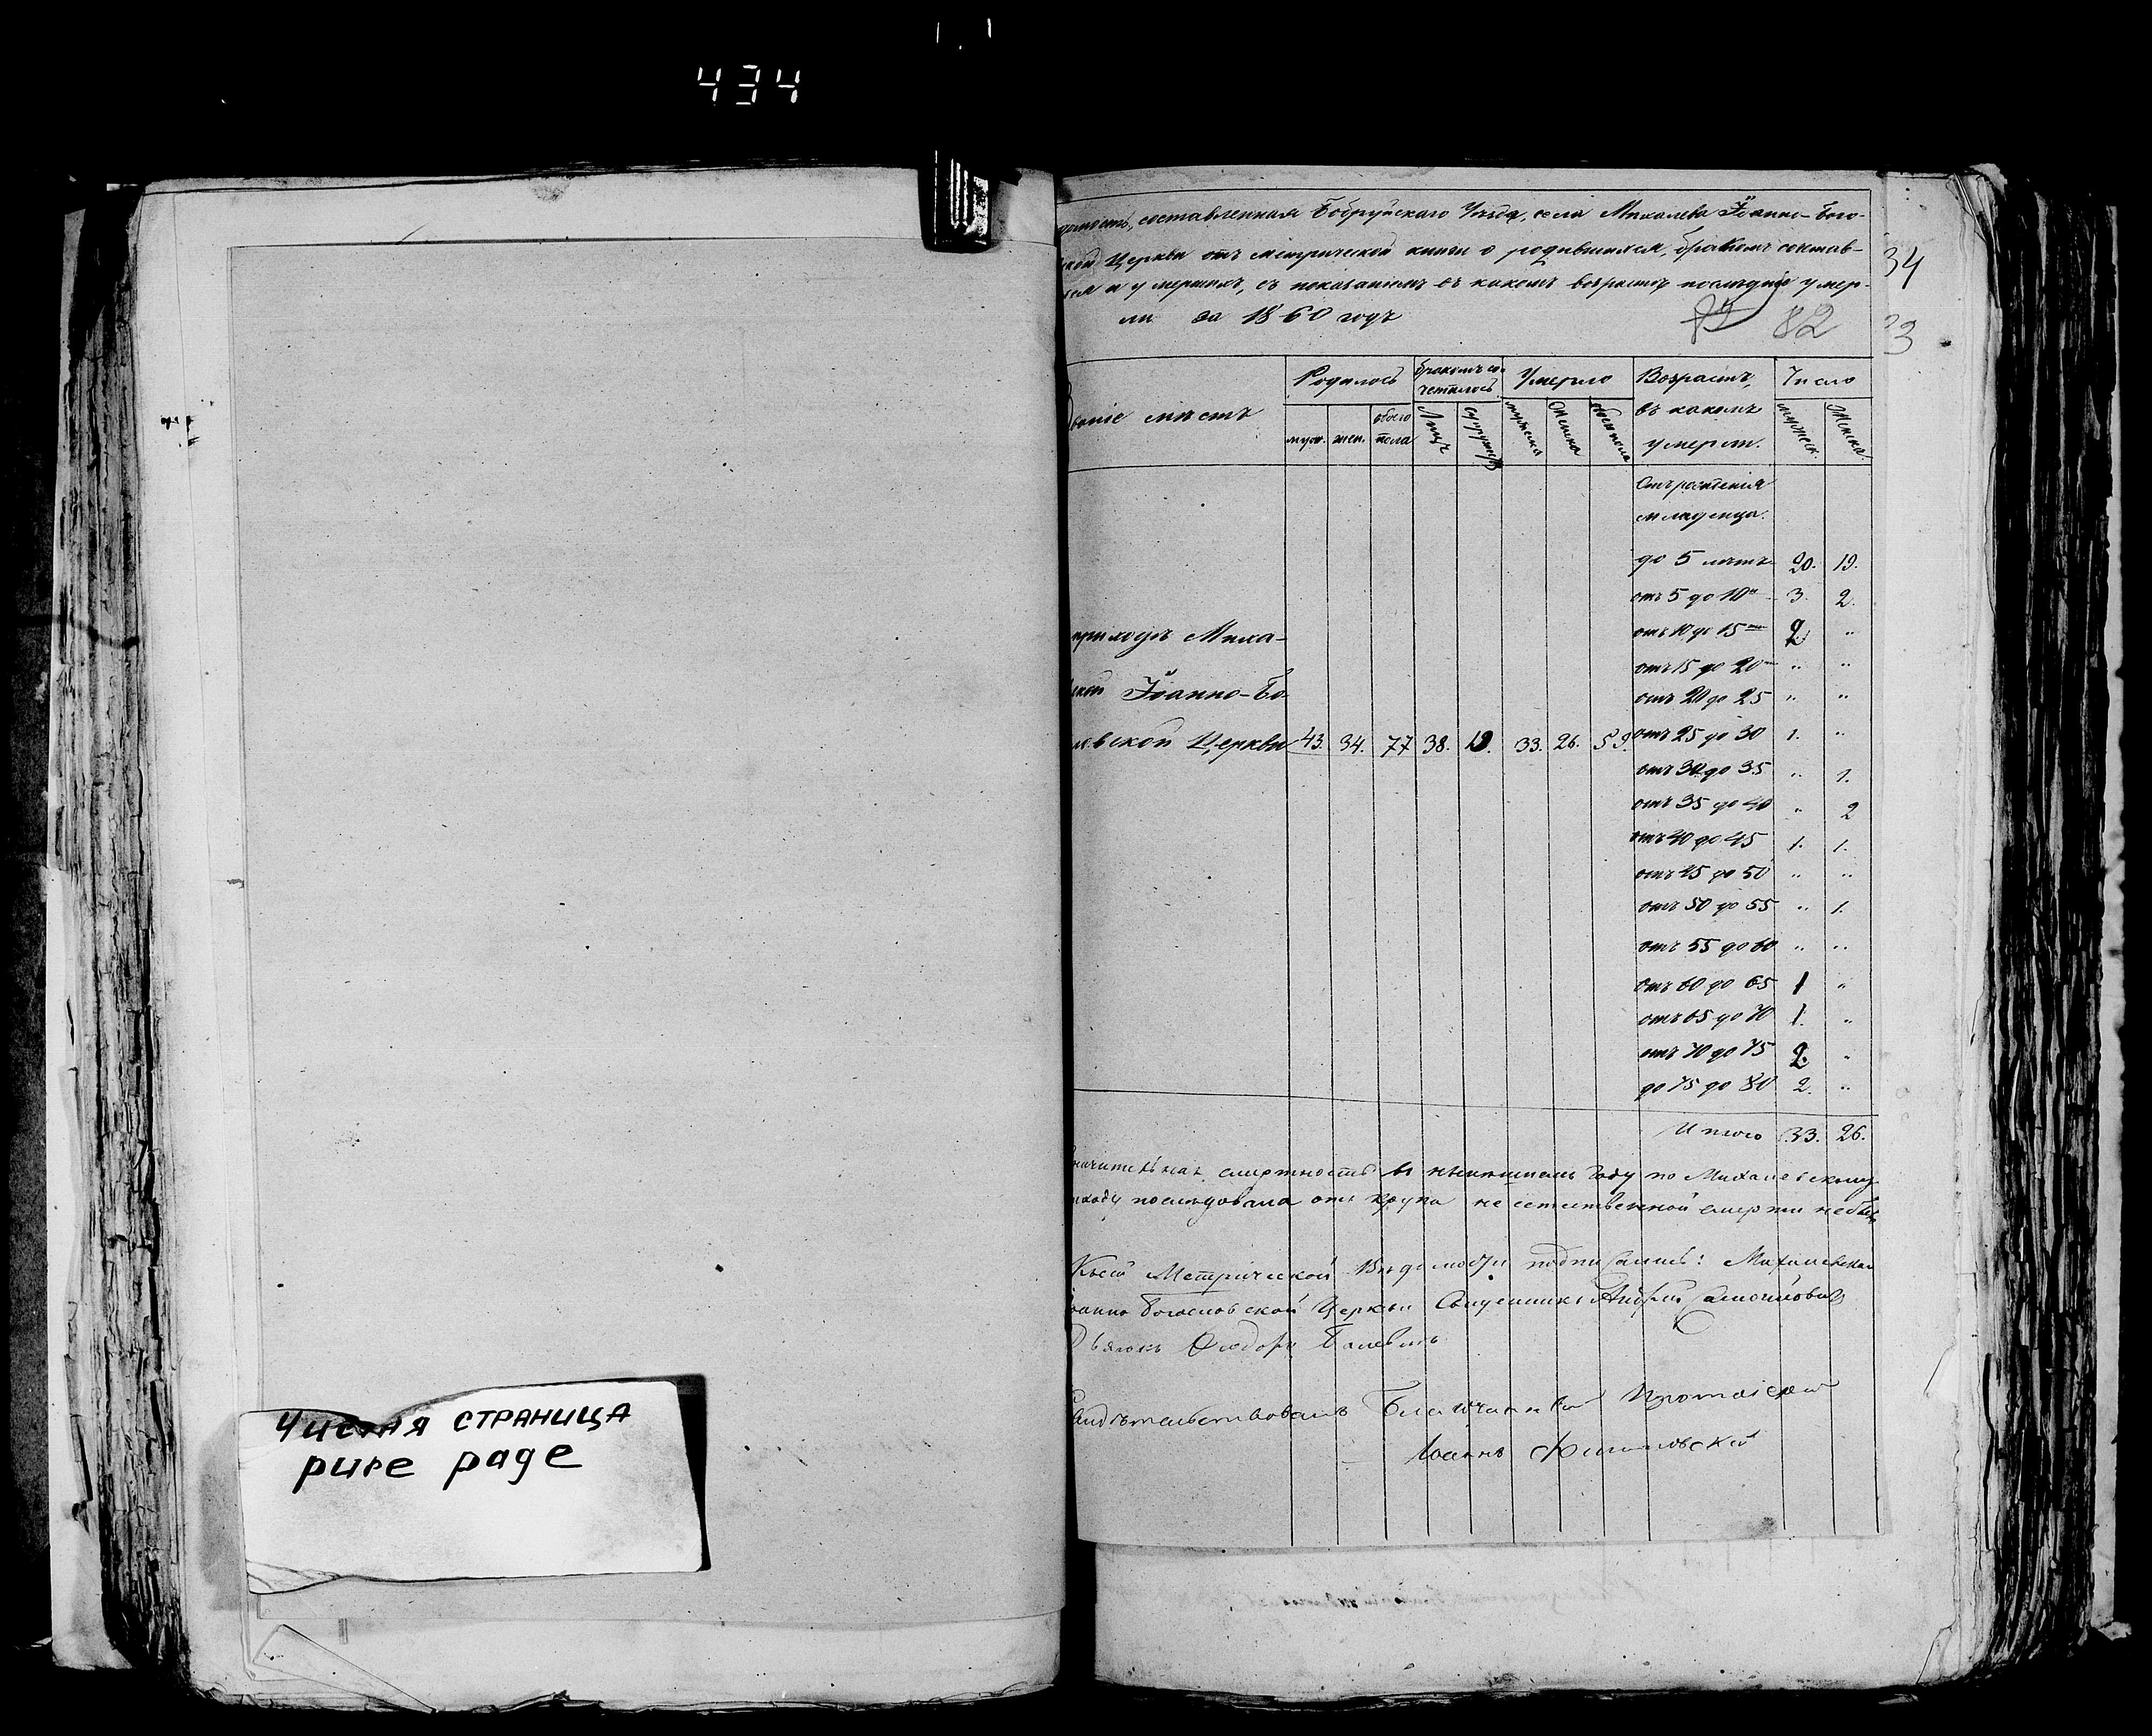 434
Чистая СТРАНИЦА
pure page
составленная Бобруйскаго Уѣзда, села Михалева Іоанно-Бого-
Церкви отъ метрической книги о родившихся, бракомъ сочетав-
и умершихъ, съ показаніемъ въ какомъ возрастѣ послѣдніе умер-
ли за 1860 годъ
82
34
33
мѣстъ
Родилось
бракомъ со-
четалось
Умерло
Возрастъ,
въ какомъ
умерли.
Число
муж. жен. обоего пола Лицъ супружествъ мужеска Женска обоего пола мужеск. Женска.
Отъ рожденія
младенца.
до 5 лѣтъ 20. 19.
отъ 5 до 10 3. 2.
приходѣ Миха-
отъ 10 до 15 2 "
отъ 15 до 20 " "
Іоанно-Бо-
отъ 20 до 25 " "
Церкви 43. 34. 77 38. 19. 33. 26. 59. отъ 25 до 30 1. "
отъ 30 до 35 " 1.
отъ 35 до 40 " 2
отъ 40 до 45 1. 1.
отъ 45 до 50 " "
отъ 50 до 55 " 1.
отъ 55 до 60 " "
отъ 60 до 65 1 "
отъ 65 до 70 1. "
отъ 70 до 75 2. "
до 75 до 80 2. "
Итого 33. 26.
смертность въ нынѣшнемъ году по Михалевскому
послѣдовала отъ крупа неестественной смерти небыло
Метрической Вѣдомости подписались: Михалевской
Богословской Церкви Священникъ Андрей
Дьячокъ Ѳеодоръ
Благочинный Протоіерей
Іоаннъ